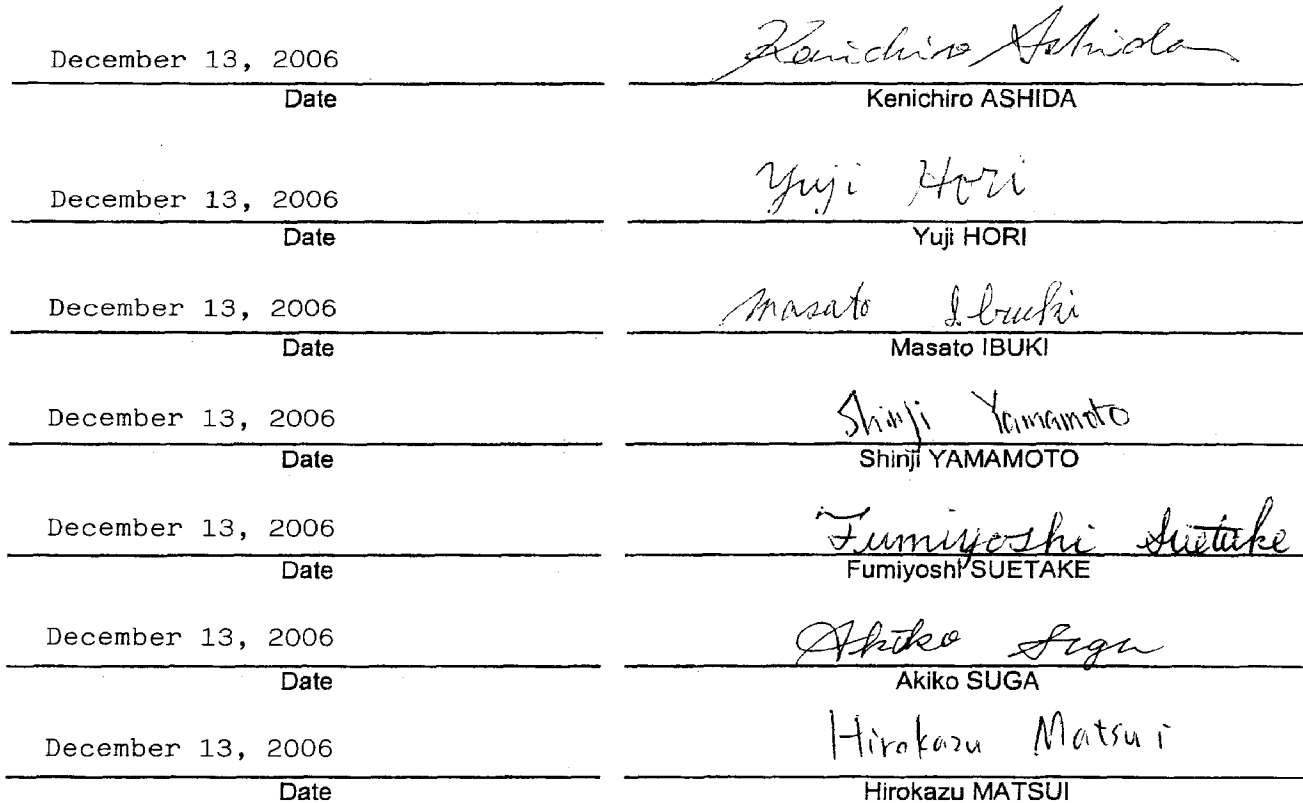 December 13, 2006 Kenichiro Ashida
Date Kenichiro ASHIDA
December 13, 2006 Yuji Hori
Date Yuji HORI
December 13, 2006 Masato Ibuki
Date Masato IBUKI
December 13, 2006 Shinji Yamamoto
Date Shinji YAMAMOTO
December 13, 2006 Fumiyoshi Suetake
Date Fumiyoshi SUETAKE
December 13, 2006 Akiko Suga
Date Akiko SUGA
December 13, 2006 Hirokazu Matsui
Date Hirokazu MATSUI